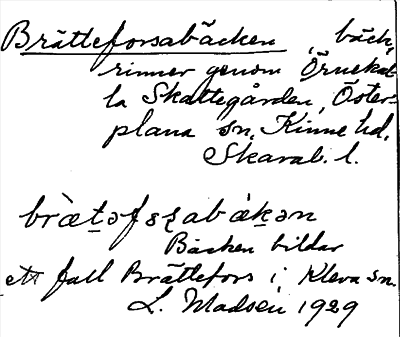 Brätteforsabäcken, bäck,
rinner genom Örnekul-
la Skattegården, Öster-
plana sn, Kinne hd.
Skarab. l.
bræ̀təfsabǽkən
Bäcken bildar
ett fall Brättefors i Kleva sn.
L. Madsen 1929